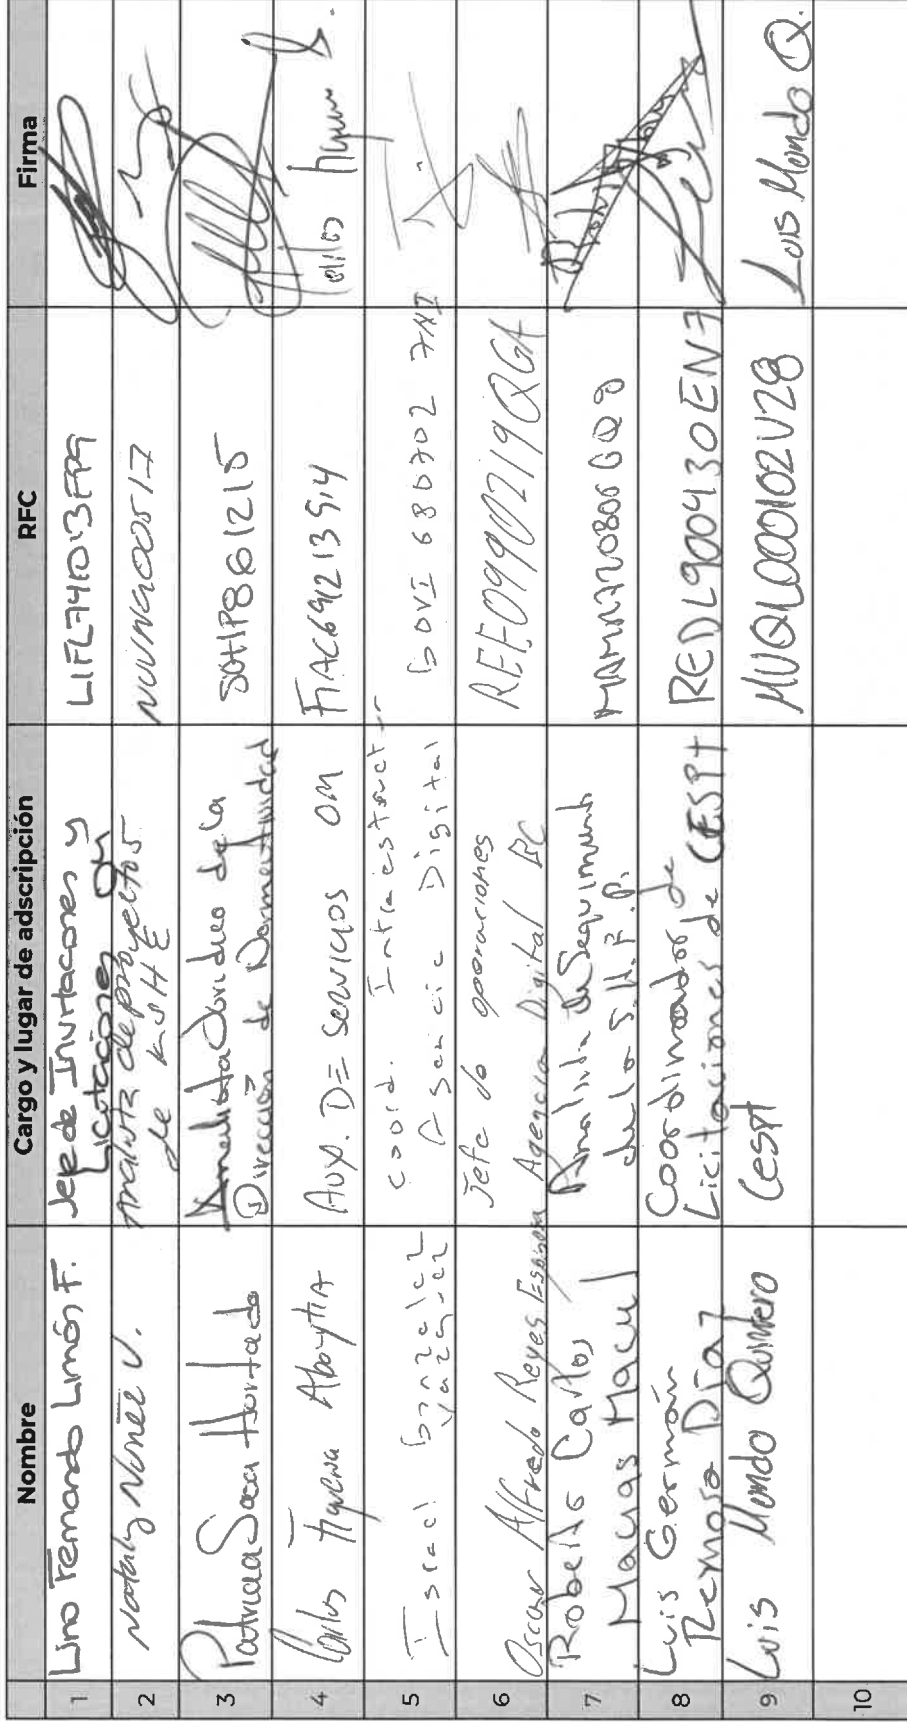 Nombre
Cargo y lugar de adscripción
RFC
Firma
1
Lino Fernando Limón F.
Jefe de Invitaciones y
Licitaciones OM
2
Nataly Núñez V.
Analista de proyectos
de la SHE
NUVN900517
3
Patricia Sosa Hurtado
Analista Jurídico de la
Dirección de Normatividad
SOHP861215
4
Carlos Figueroa Abaytia
Aux. DE Servicios OM
5
Israel González
coord. Infraestruct
Agencia Digital
GOVI 680702 7NI
6
Oscar Alfredo Reyes Espinoza
Jefe de operaciones
Agencia Digital BC
REEO990219QGA
7
Roberto Carlos
Macías
Analista de Seguimiento
de la S.H.F.P.
8
Luis Germán
Díaz
Coordinador de
Licitaciones de CESPT
REDL900430EN7
9
Luis Quintero
Cespt
MUQL000102V28
Luis Q.
10